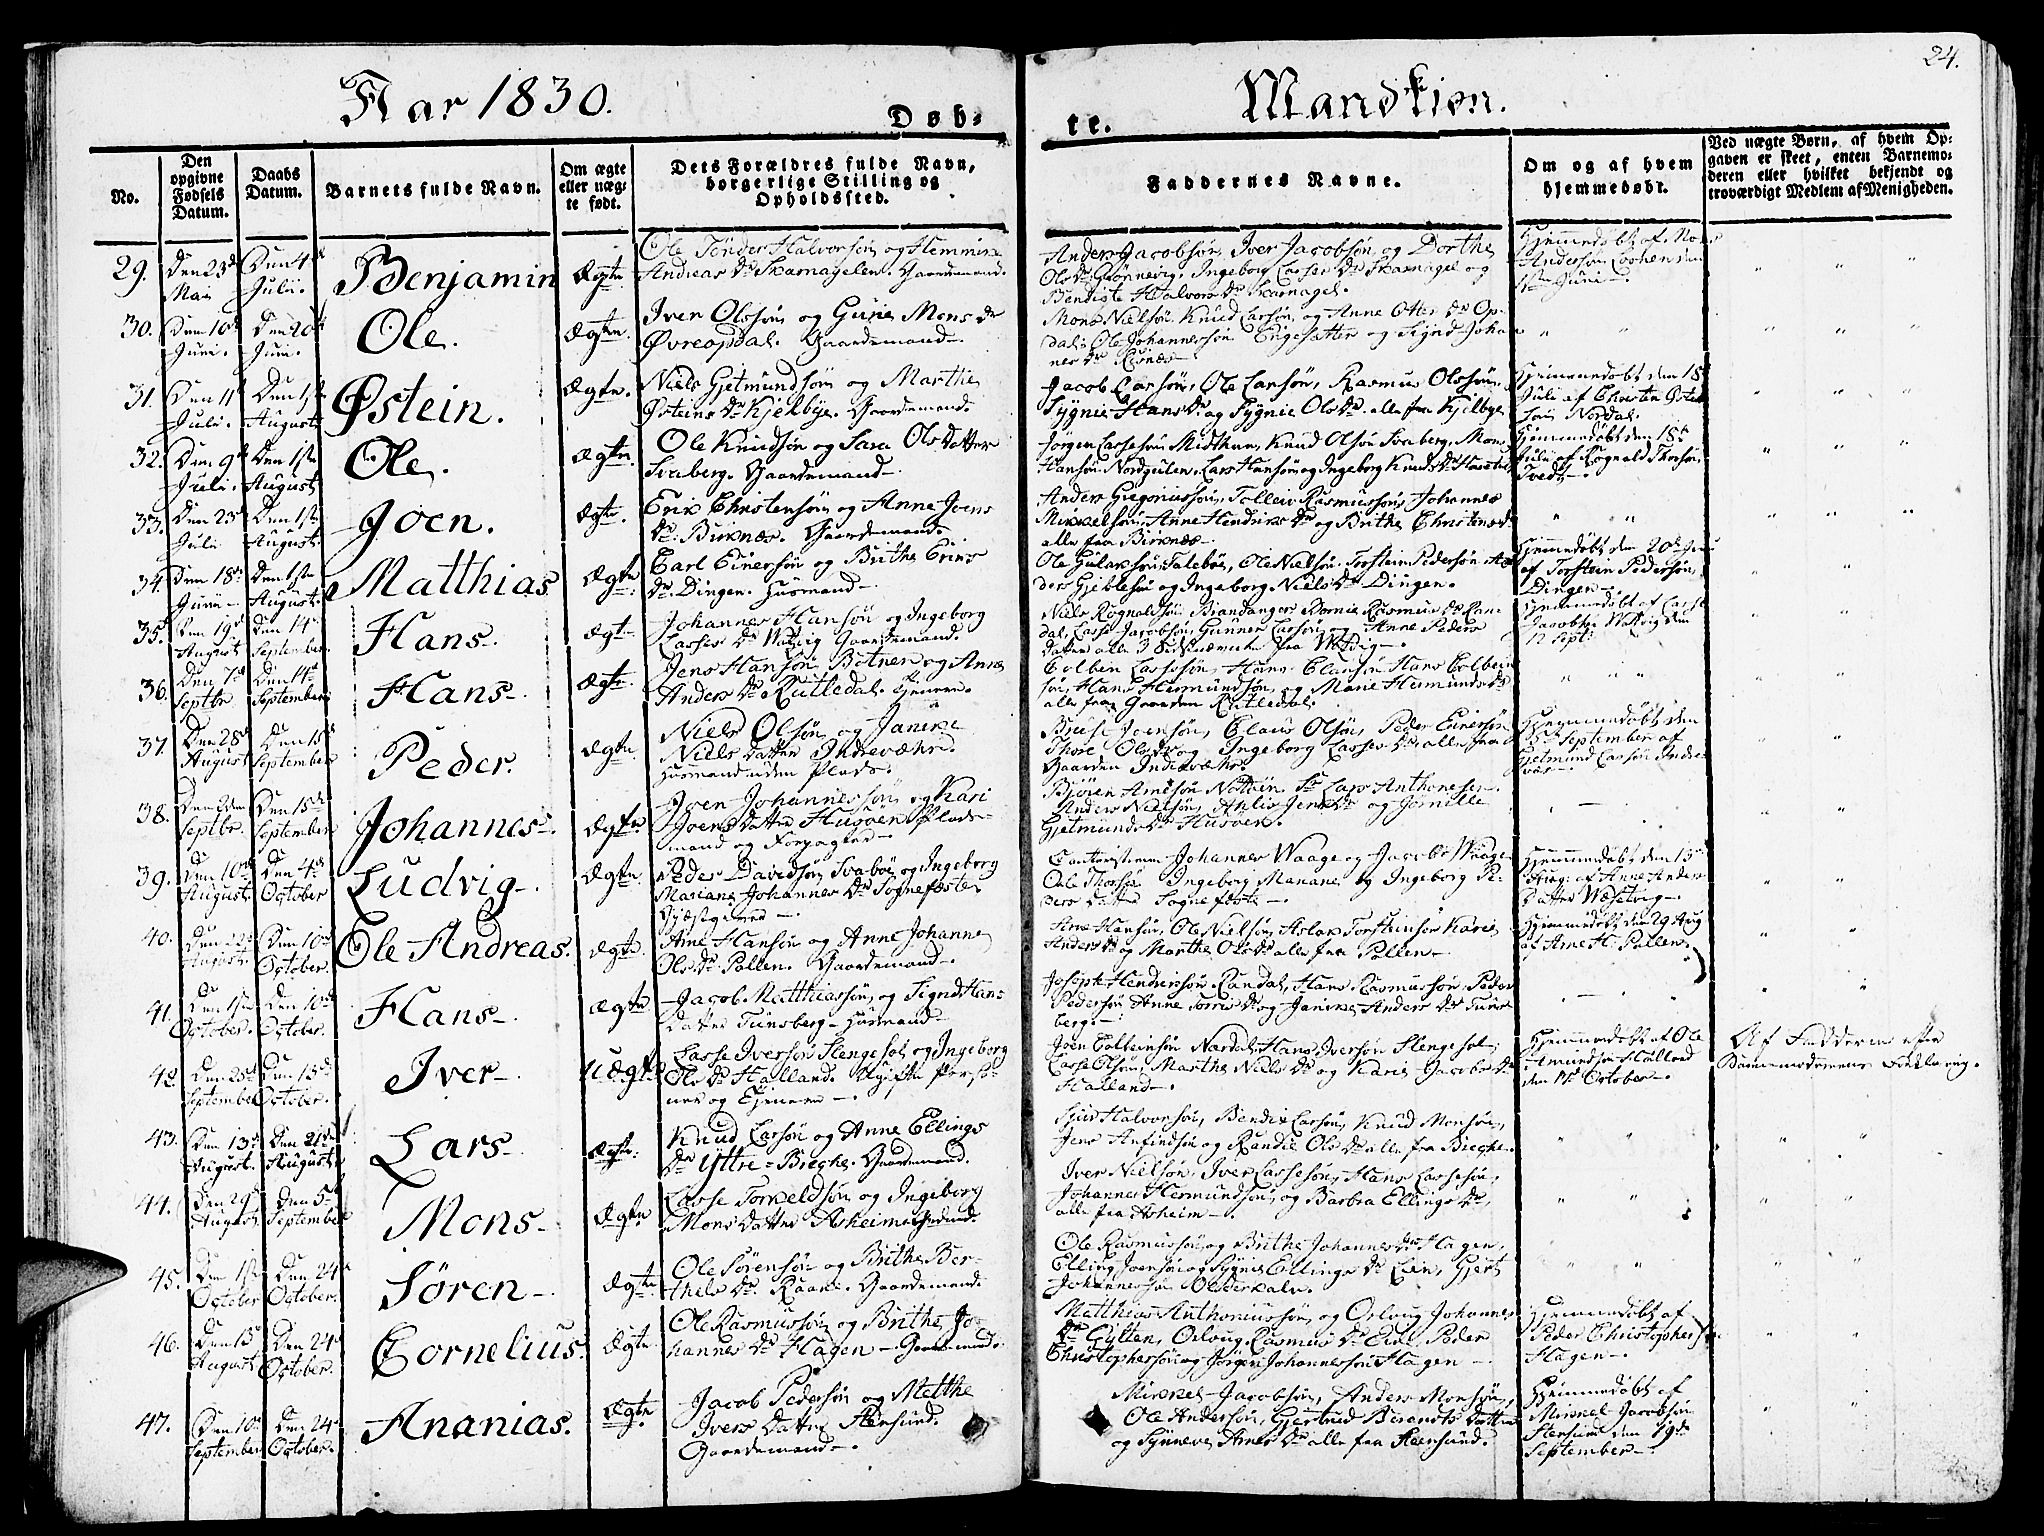 24.
Aar 1830.
Døb-
te.
Mandkiøn.
No.
Den
opgivne
Fødsels
Datum.
Daabs
Datum.
Barnets fulde Navn.
Om ægte
eller uæg-
te født.
Dets Forældres fulde Navn,
borgerlige Stilling og
Opholdssted.
Faddernes Navne.
Om og af hvem
hjemmedøbt.
Ved uægte Børn, af hvem Op-
gaven er skeet, enten Barnemo-
deren eller hvilket bekjendt og
troværdigt Medlem af Menigheden.
29.
Den 23d
Mai
Den 4d
Julii.
Benjamin
Ægte.
Ole Tönder Halvorsön og Hemmin
Andreas Dr Skarnagelen. Gaardemand.
Anders Jacobsön, Iver Jacobsön og Dorthe
Ols Dr Grönnevig, Ingeborg Lasses Dr Skarnagel og
Bendigte Halvors Dr Skarnagel.
Hjemmedöbt af Mons
Andersön
Juni
30.
Den 10d
Juni.
Den 20d
Juni.
Ole.
Ægte.
Iver Olssön og Guri Mons Dr
Øvreopdal. Gaardemand
Mons Nielsön Knud Larsön og Anne Otter Dr Op-
dal; Ole Johannessön Engesætter og Signd Joha
nes Dr Risnes
31.
Den 11te
Juli.
Den 1ste
August
Østein.
Ægte.
Niels Gjetmundsön og Marthe
Østeins Dr Kjelbye. Gaardemand.
Jacob Larsön, Ole Larsön, Rasmus Olssön,
Sygnie Hans Dr og Sygnie Ols Dr alle fra Kjelbye
Hjemmedöbt den 15d
Juli af Christen Østen
sön Nordal.
32.
Den 9d
Juli.
Den 1ste
August
Ole.
Ægte.
Ole Knudsön og Sara Olsdatter
Svaberg. Gaardemand
Jörgen Lassesön Midthun, Knud Olsön Svaberg, Mons
Hansön Nordgulen, Lars Hansön og Ingeborg Knuds Dr
Hjemmedöbt den 18d
Juli af Rognald Thorsön
Tvedt.
33.
Den 23d
Juli
Den 1ste
August.
Joen.
Ægte.
Erik Christensön og Anne Joens
Dr. Birknes. Gaardemand.
Anders Gregoriussön, Tolleiv Rasmussön, Johannes
Mikkelsön, Anne Hendriks Dr og Brithe Christens Dr
alle fra Birknes
34.
Den 18d
Junii
Den 1ste
August.
Matthias
Ægte.
Carl Einersön og Brithe Eriks
Dr. Dingen. Husmand
Ole Gulaksön Taleböe, Ole Nielsön, Torstein Pedersön, An
ders Gjeblesön og Ingeborg Niels Dr Dingen.
Hjemmedöbt den 20d Juni
af Torstein Pedersön,
Dingen.
35.
Den 19d
August
Den 14d
September
Hans
Ægte
Johannes Hansön og Ingeborg
Lasses Dr Wadvig Gaardemand.
Niels Rognaldsön Brandanger, Bornie Rasmus Dr Ran-
dal, Lasse Jacobsön, Gunner Larsön og Anne Peders
datter alle 3 fra Wadvig
Hjemmedöbt af Lasse
Jacobsön Wadvig den
12 Sept:
36.
Den 7d
Septbr
Den 14d
September
Hans
Ægte.
Jens Hansön Botnen og Anne
Anders Dr Rutledal. tjenere.
Colbin Lassesön, Hans Clausön, Hans Colbein
sön, Hans Hermundsön, og Marie Hermunds Dr
alle fra Gaarden Rutledal.
37.
Den 28d
August
Den 15d
September
Peder.
Ægte.
Niels Olsön og Janike
Niels datter Indrevæhr.
Husmand uden Plads.
Bruse Joensön, Claus Olsön, Peder Einersön
Thore Ols Dr og Ingeborg Lasses Dr alle fra
Gaarden Indrevæhr.
Hjemmedöbt den
5te September af
Gjetmund Larsön Indre
vær.
38.
Den 2den
Septbr.
Den 15d
September
Johannes
Ægte
Joen Johannessön og Kari
Joens datter Husöen Plads-
mand og Forpagter
Björen Arnesön Notöen, Sr Lars Anthonesen
Anders Nielsön, Ahlis Jens Dr og Jörnille
Gjetmunds Dr Husöen.
39.
Den 10de
August.
Den 4de
October
Ludvig
Ægte.
Peder Davidsön Svaböe og Ingeborg
Mariane Johannes Dr Sognefæste
Gjæstgiver
Cantoristinn Johannes Waage og Jacob Waage
Ole Thorsön Ingeborg Mariane og Ingeborg Pe-
ders datter Sognefæste
Hjemmedöbt den 13d
Aug: af Anne Anders
datter Wæsetvig
40.
Den 22d
August.
Den 10d
October.
Ole Andreas.
Ægte.
Arne Hansön og Anne Johanne
Ols Dr Pollen. Gaardemand.
Arne Hansön, Ole Nielsön, Aslak Torsteinsön Karie
Anders Dr og Marthe Ols Dr alle fra Pollen
Hjemmedöbt den 29 Aug
af Arne H. Pollen.
41.
Den 1ste
October.
Den 10d
October.
Hans
Ægte
Jacob Matthiassön og Signd Hans
datter Tunsberg Husmand
Joseph Hendriksön Randal, Hans Rasmussön Peder
Pedersön Anne Torris Dr og Janike Anders Dr Tuns
berg.
42.
Den 25d
September
Den 15d
October.
Iver
Uægte
Lasse Iversön Slengesol og Ingeborg
Ols Dr Halland. Ugifte Perso-
ner og Tjenere
Joen Colbeinsön Nordal, Hans Iversön Slengesol,
Lasse Olsön, Marthe Niels Dr og Karie Jacobs Dr
Halland
Hjemmedöbt af Ole
Amundsön Halland
den 1ste October
Af Fadderne efter
Barnemoderens Forklaring.
43.
Den 13d
August.
Den 21de
August
Lars
Ægte.
Knud Larsön og Anne Ellings
Dr Yttre-Bieghe. Gaardemand.
Sjur Halvorsön, Bendix Larsön, Knud Monsön,
Jens Anfindsön og Randie Ols Dr alle fra Bieghe
44.
Den 29d
August
Den 5d
September
Mons
Ægte
Lasse Torkeldsön og Ingeborg
Mons datter Asheim Gmd.
Iver Nielsön, Iver Lassesön, Hans Lassesön,
Johannes Hermundsön, og Barbra Ellings Dr,
alle fra Asheim
45.
Den 1ste
October
Den 24d
October.
Sören
Ægte
Ole Sörensön og Brithe Ber-
thels Dr. Raane. Gaardemand
Ole Rasmussön og Brithe Johannes Dr Hagen,
Elling Joensön og Sygnie Ellings Dr Eien, Gjert
Johannessön
46.
Den 15d
August
Den 24d
October.
Cornelius.
Ægte
Ole Rasmussön og Brithe Jo-
hannes Dr Hagen Gaardemand.
Matthias Anthoniussön og Oslaug Johannes
Dr Gylten, Oslaug Rasmus Dr Eide, Peder
Christophersön og Jörgen Johannessön Hagen
Hjemmedöbt af
Peder Christophersön
Hagen
47.
Den 10d
September
Den 24d
October.
Ananias.
Ægte
Jacob Pedersön og Metthe
Ivers datter Stensund.
Gaardemand.
Mikkel Jacobsön, Anders Monsön,
Ole Andersön, Gjertrud datter
og Synneve Arnes Dr alle fra Steensund.
Hjemmedöbt af
Mikkel Jacobsön
Stensund den 19de
September